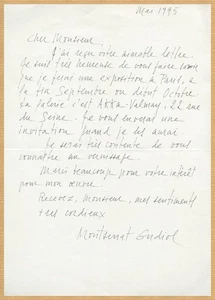 Mai 1995
Cher Monsieur,
J'ai reçu votre aimable lettre.
Je suis très heureuse de vous faire savoir
que je ferai une exposition à Paris, à
la fin Septembre ou début Octobre.
La galerie c'est Akka-Valmay, 22 rue
du Seine. Je vous enverai une
invitation quand je les aurai
Je serai très contente de vous
connaître au vernissage.
Merci beaucoup pour votre intérêt
pour mon œuvre
Recevez, Monsieur, mes sentiments
très cordieux
Montserrat Gudiol